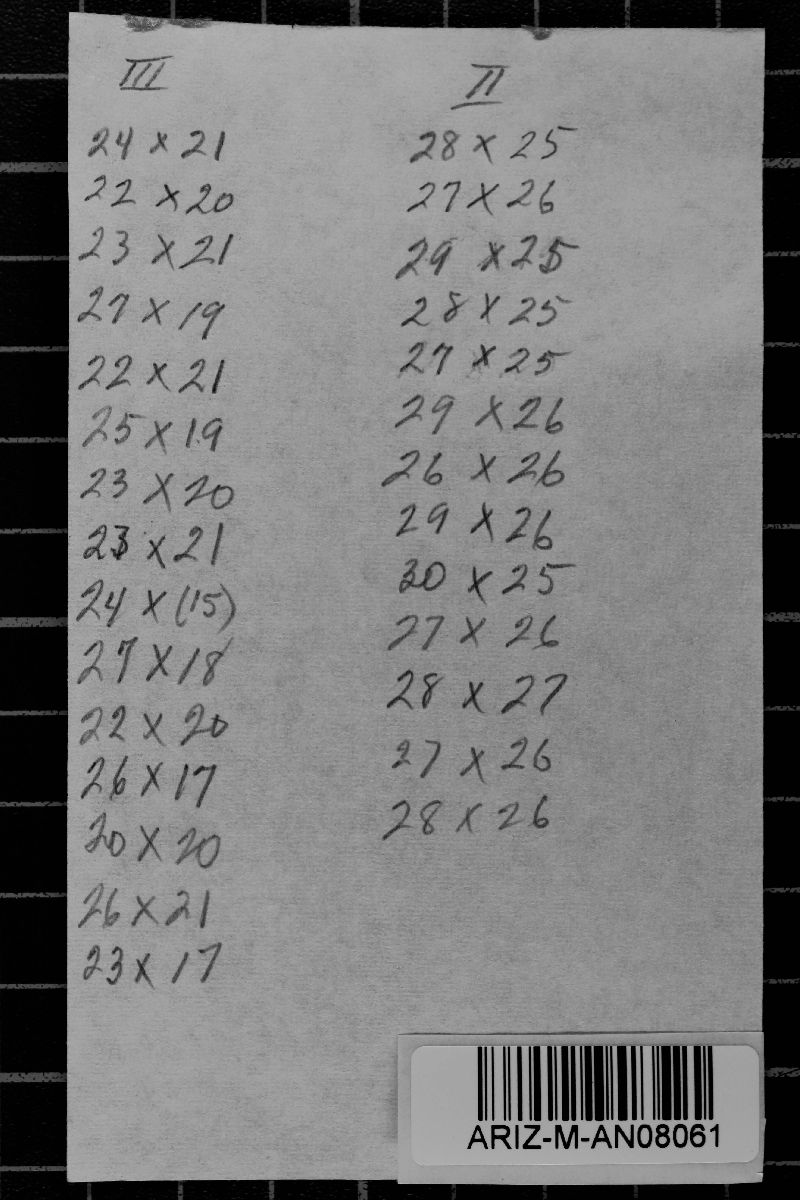 III
24 x 21
22 x 20
23 x 21
27 x 19
22 x 21
25 x 19
23 x 20
23 x 21
24 x (15)
27 x 18
22 x 20
26 x 17
20 x 20
26 x 21
23 x 17
II
28 x 25
27 x 26
29 x 25
28 x 25
27 x 25
29 x 26
26 x 26
29 x 26
30 x 25
27 x 26
28 x 27
27 x 26
28 x 26
ARIZ-M-AN08061